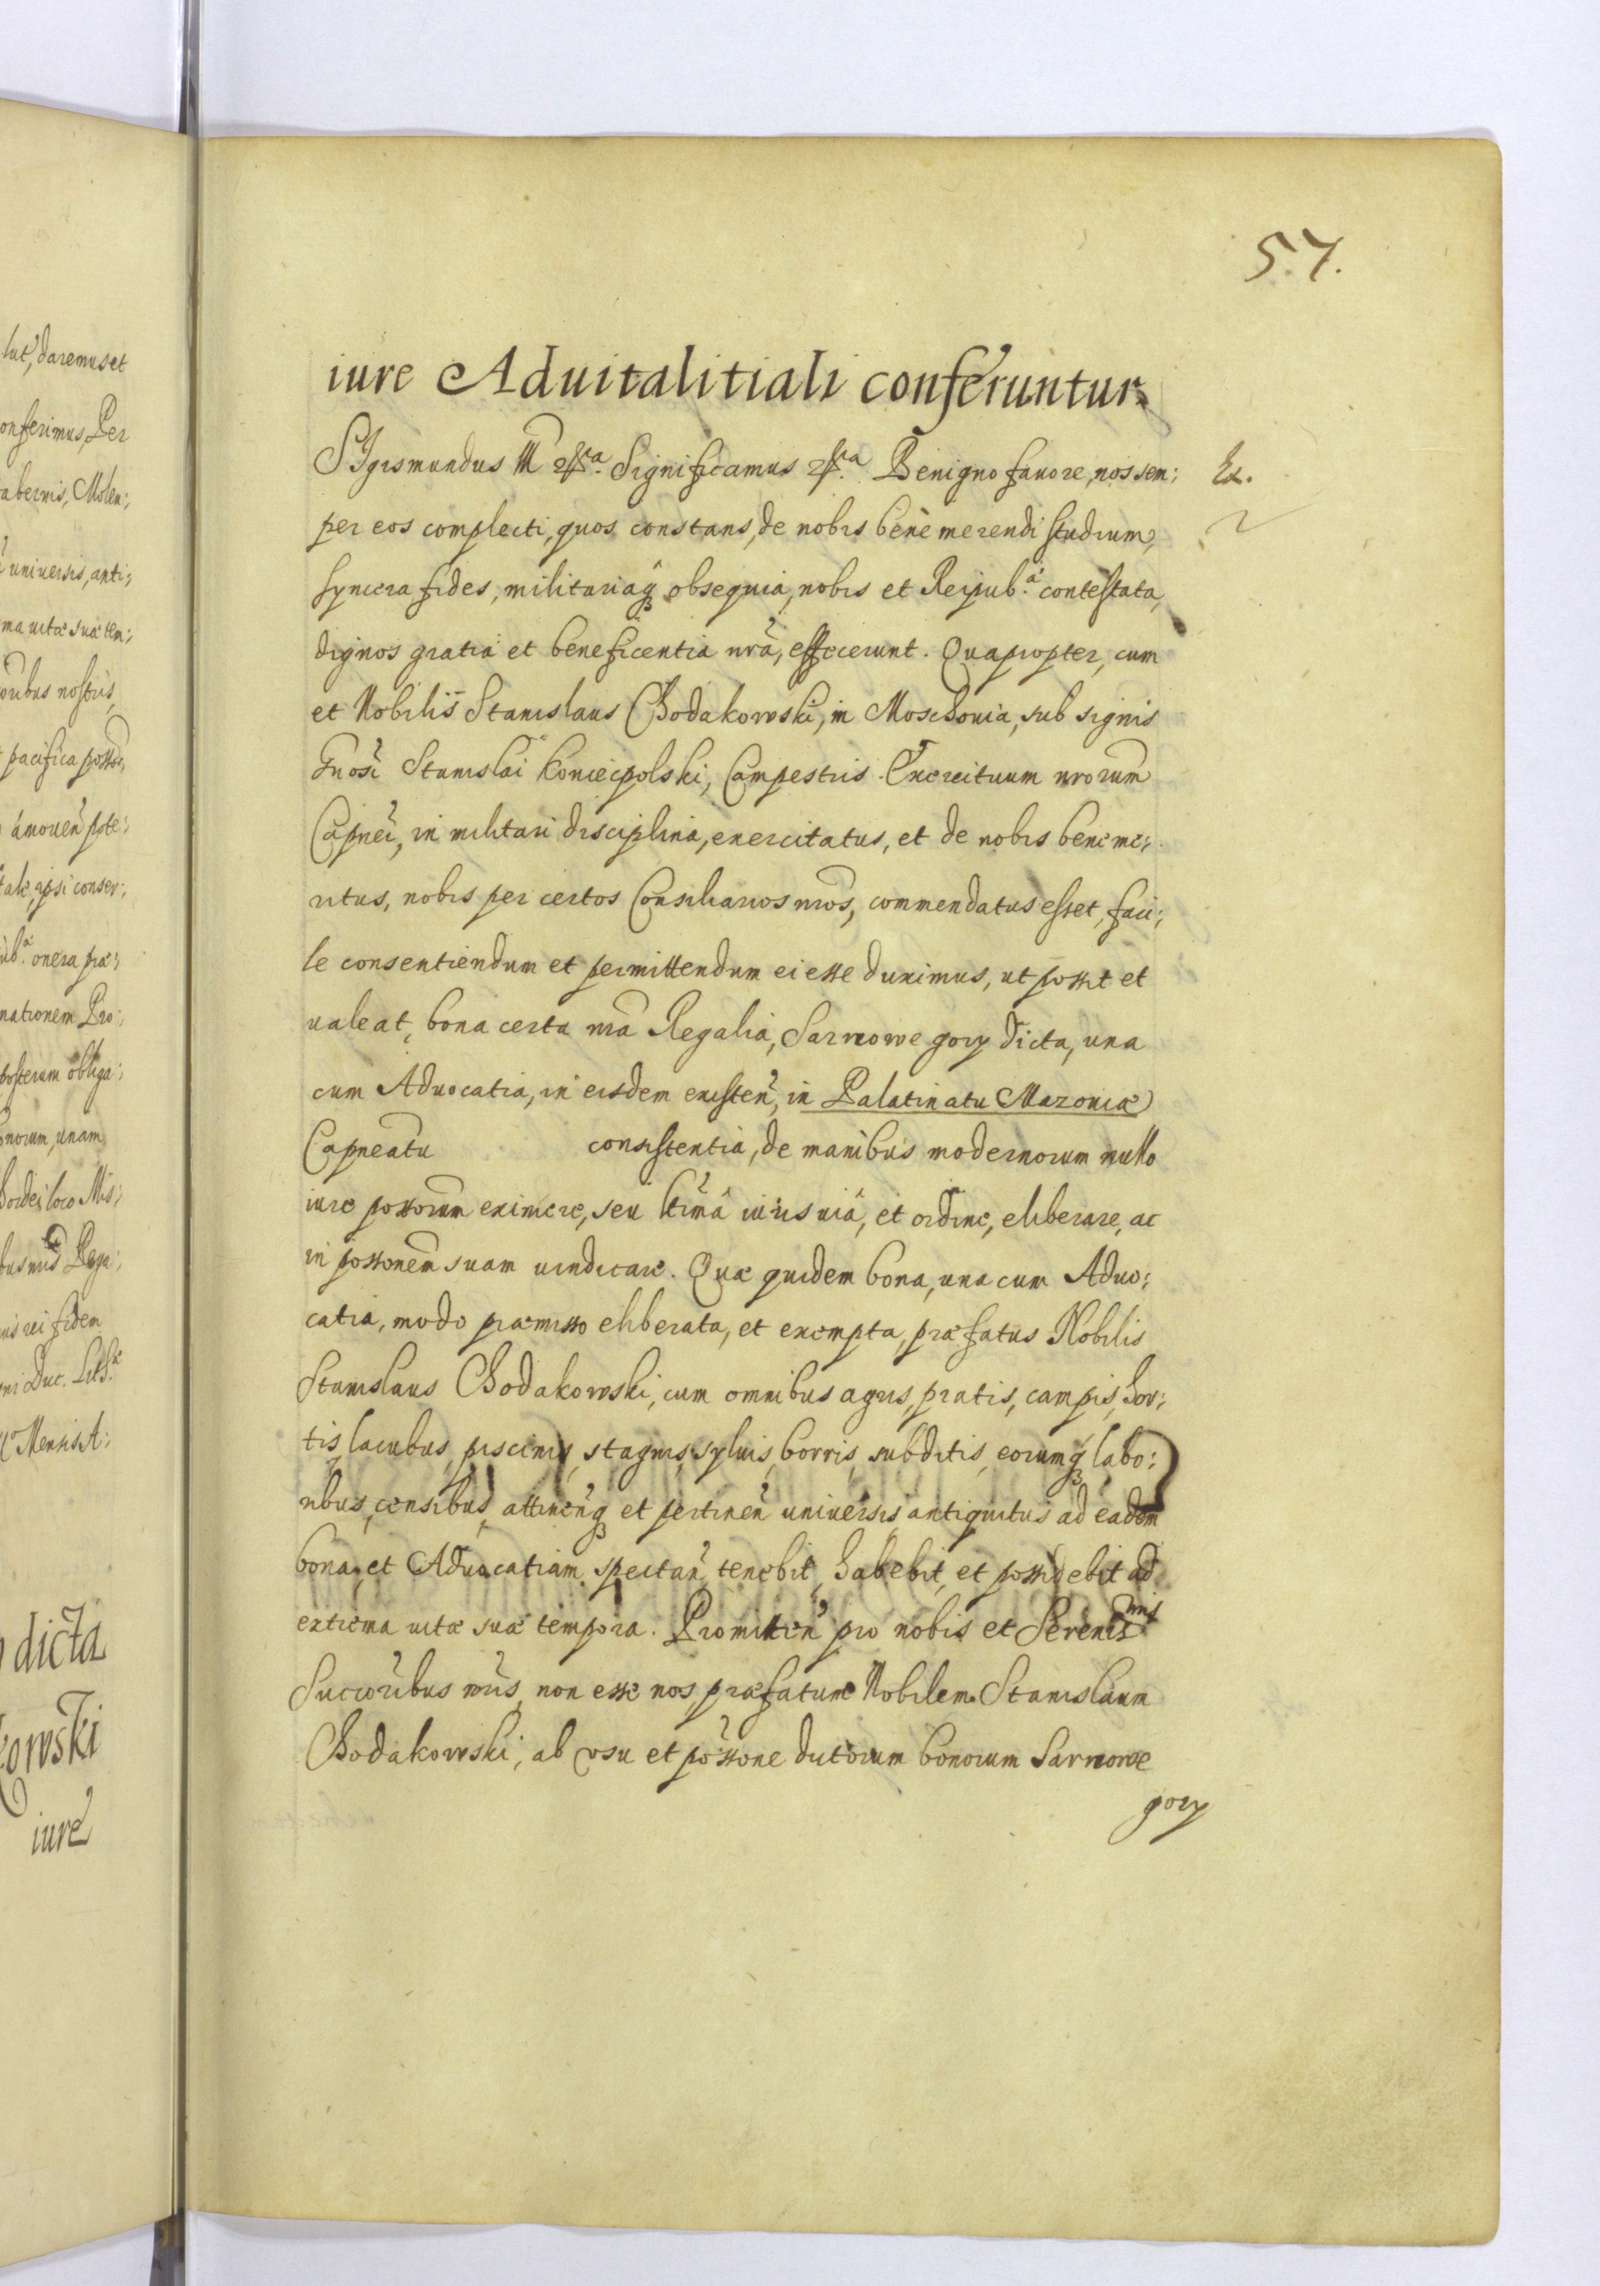 57.
iure Aduitalitiali conferuntur
SIgismundus III etc^ra. Significamus etc^ra. Benigno fauore, nos sem:
Ex.
per eos complecti, quos constans, de nobis benè merendi studium,
syncera fides, militariaq₃ obsequia, nobis et Reipub.^a contestata,
dignos gratia et beneficentia nrã, effecerunt. Quapropter, cum
et Nobilis Stanislaus Chodakowski, in Moschouia, sub signis
Gnosi Stanislai Koniecpolski, Campestris Exercituum nrorum
Capnei, in militari disciplina, exercitatus, et de nobis bene me:
ritus, nobis per certos Consiliarios nros, commendatus esset, faci:
le consentiendum et permittendum ei esse duximus, ut possit et
ualeat, bona certa nrã Regalia, Sarnowe gory dicta, una
cum Aduocatia, in eisdem existen, in Palatinatu Mazouiæ
Capneatu consistentia, de manibus modernorum nullo
iure possorum eximere, seu ltimâ iuris uiâ, et ordine, eliberare, ac
in possonem suam uindicare. Quæ quidem bona, una cum Aduo:
catia, modo præmisso eliberata, et exempta, præfatus Nobilis
Stanislaus Chodakowski, cum omnibus agris, pratis, campis, hor:
tis, lacubus, piscinis, stagnis, syluis, borris, subditis, eorumq₃ labo:
ribus, censibus, attinenq₃ et pertinen uniuersis antiquitus ad eadem
bona, et Aduocatiam spectan, tenebit, habebit, et possidebit ad
extrema uitæ suæ tempora. Promitten pro nobis et Sereniss^mis
Succoribus nris, non esse nos præfatum Nobilem Stanislaum
Chodakowski, ab vsu et possone dictorum bonorum Sarnowe
gory